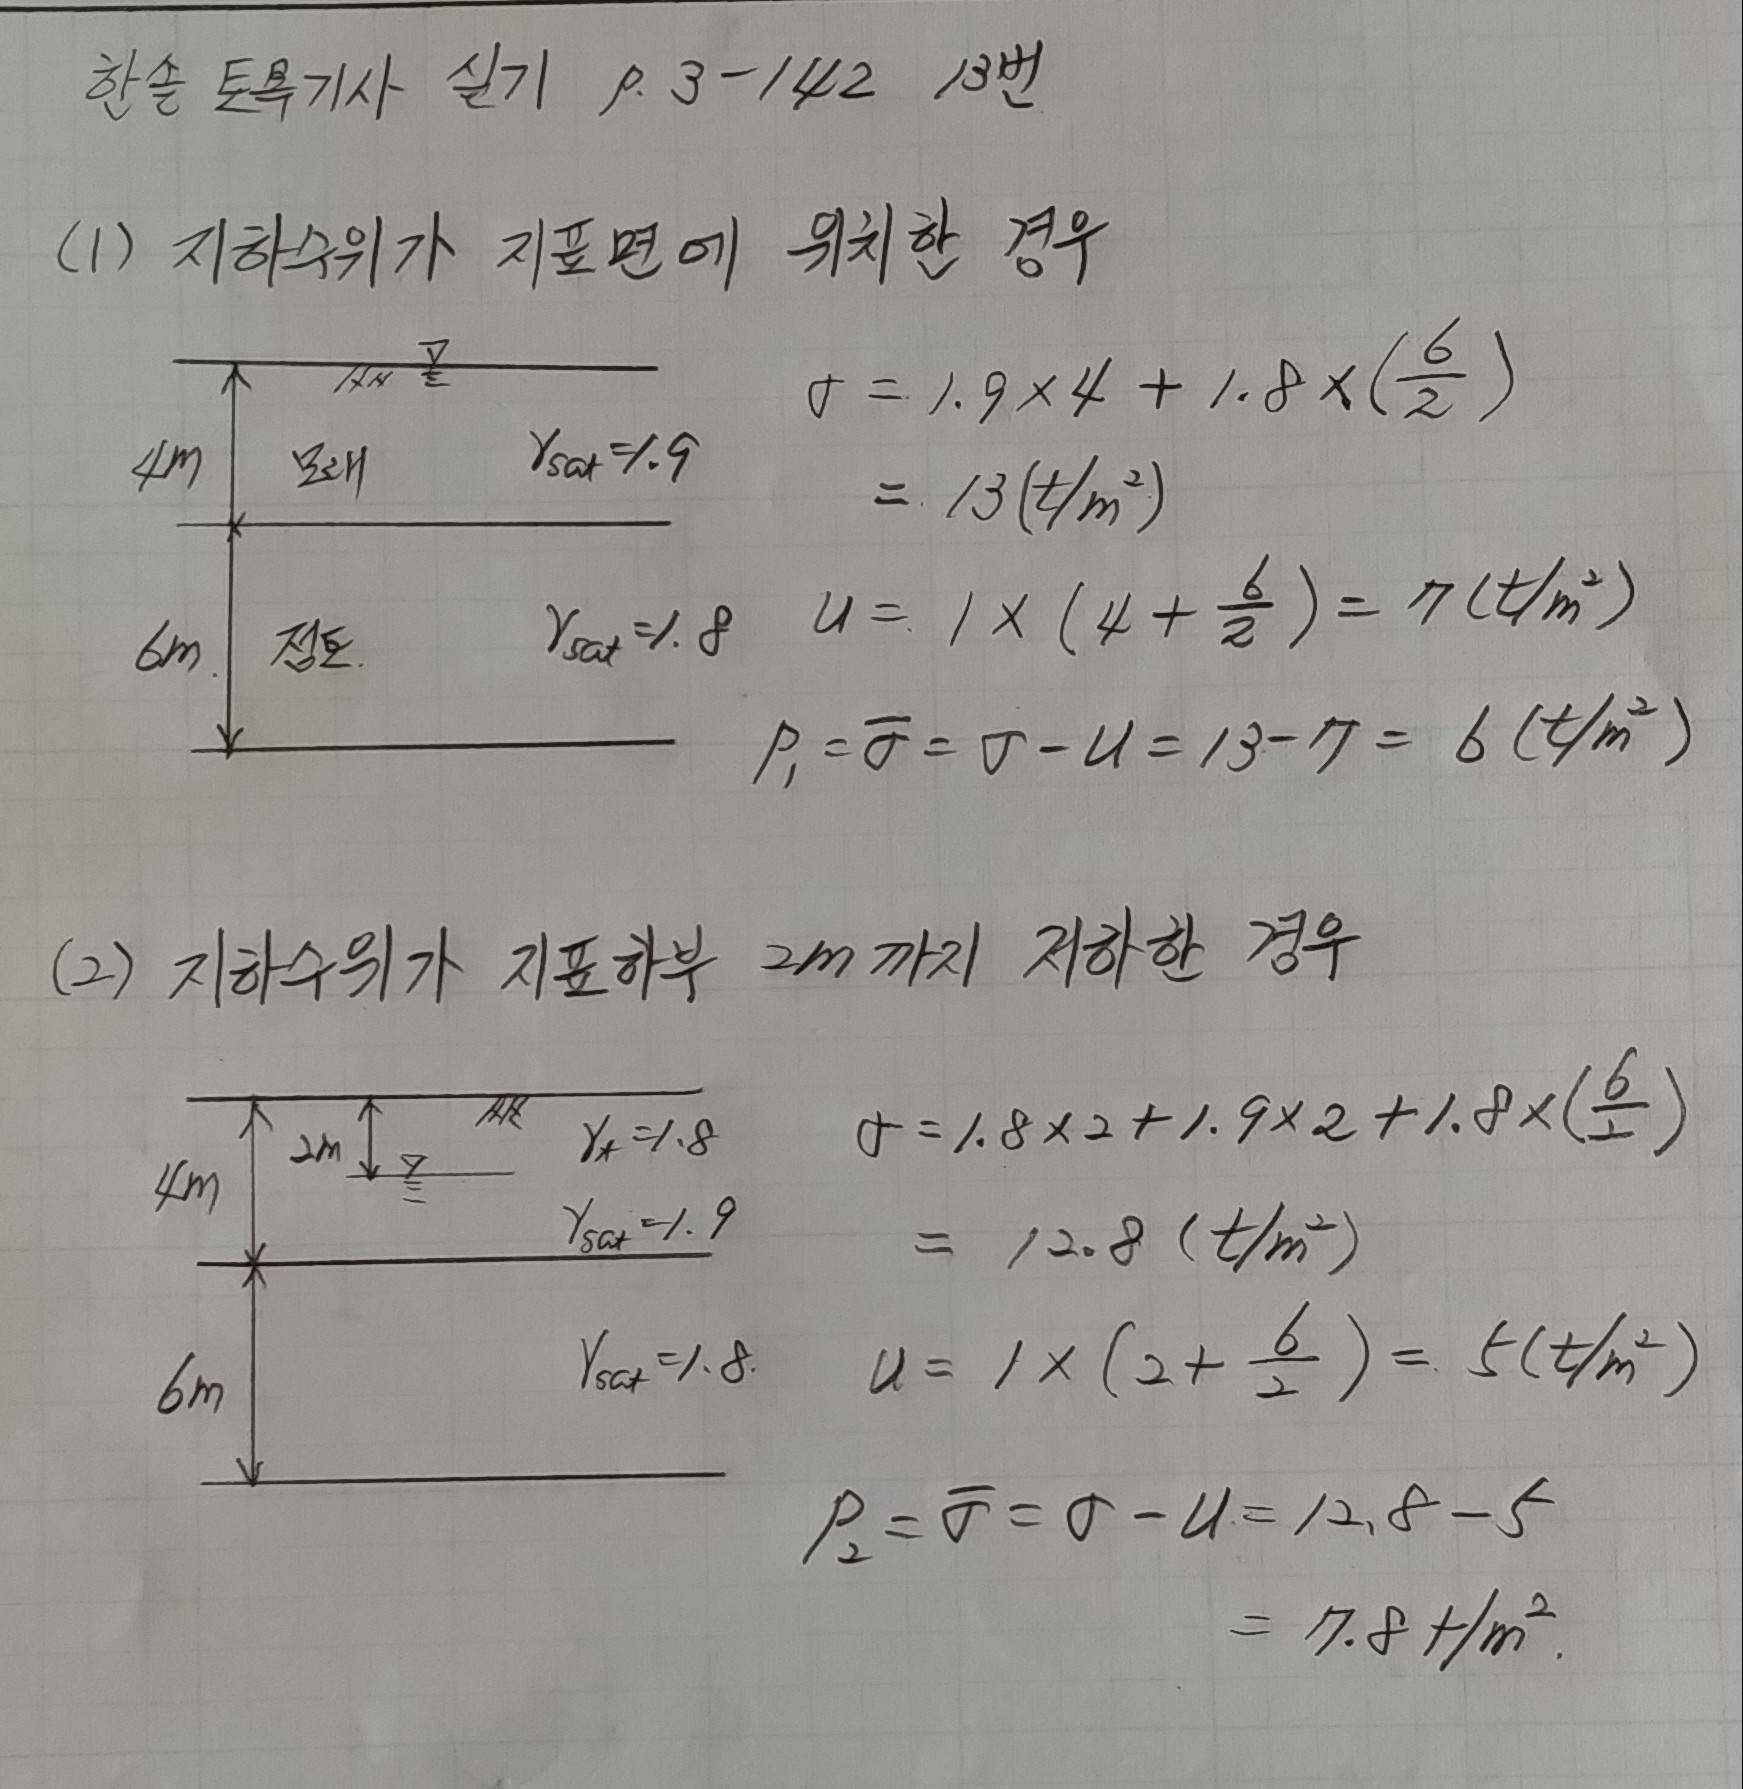 한솔 토목기사 실기 p. 3-142 13번
(1) 지하수위가 지표면에 위치한 경우
4m 모래 γsat=1.9
6m. 점토. γsat=1.8
σ = 1.9×4 + 1.8×(6/2)
= 13(t/m²)
u = 1×(4+6/2) = 7(t/m²)
P₁ = σ̅ = σ-u = 13-7 = 6(t/m²)
(2) 지하수위가 지표하부 2m까지 저하한 경우
4m 2m γt=1.8
γsat=1.9
6m γsat=1.8.
σ = 1.8×2+1.9×2+1.8×(6/2)
= 12.8 (t/m²)
u = 1×(2+6/2) = 5(t/m²)
P₂ = σ̅ = σ-u = 12.8-5
= 7.8 t/m².